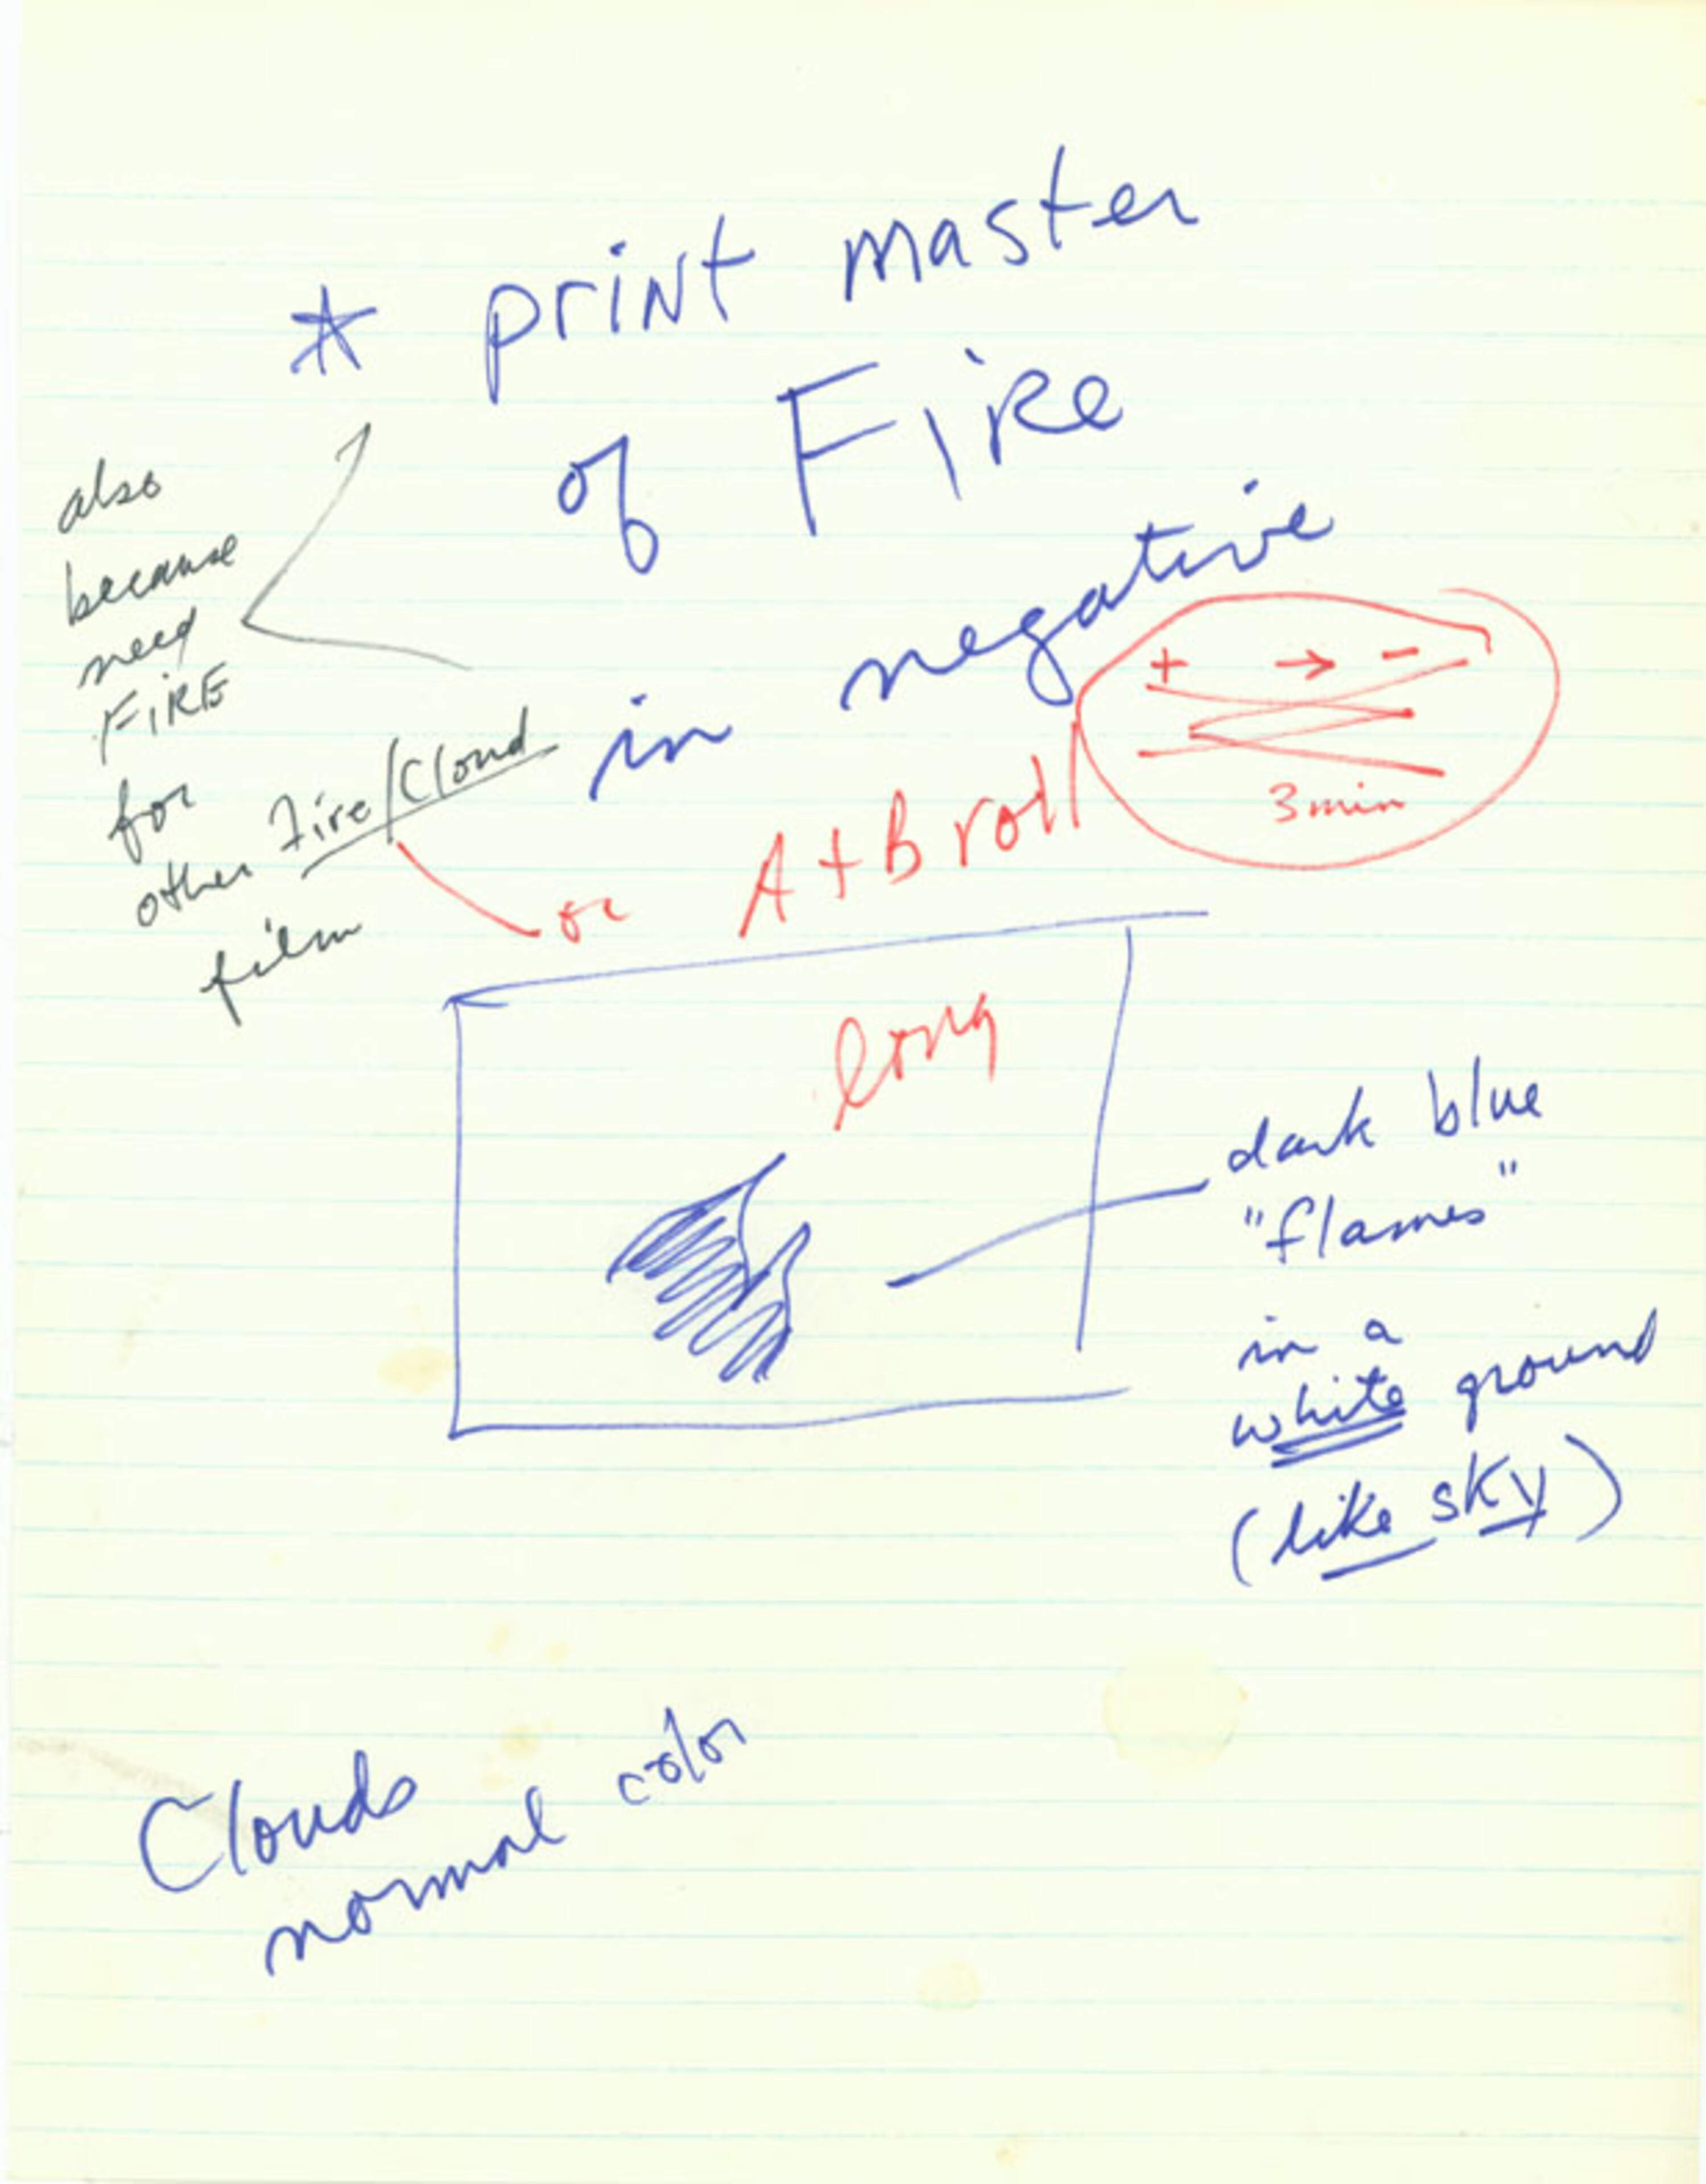 * print master
of FiRe
in negative
also
because
need
FiRE
for
other Fire/Cloud
film
+ → -
3 min
or A + B roll
long
dark blue
"flames"
in a
white ground
(like sky)
Clouds
normal color